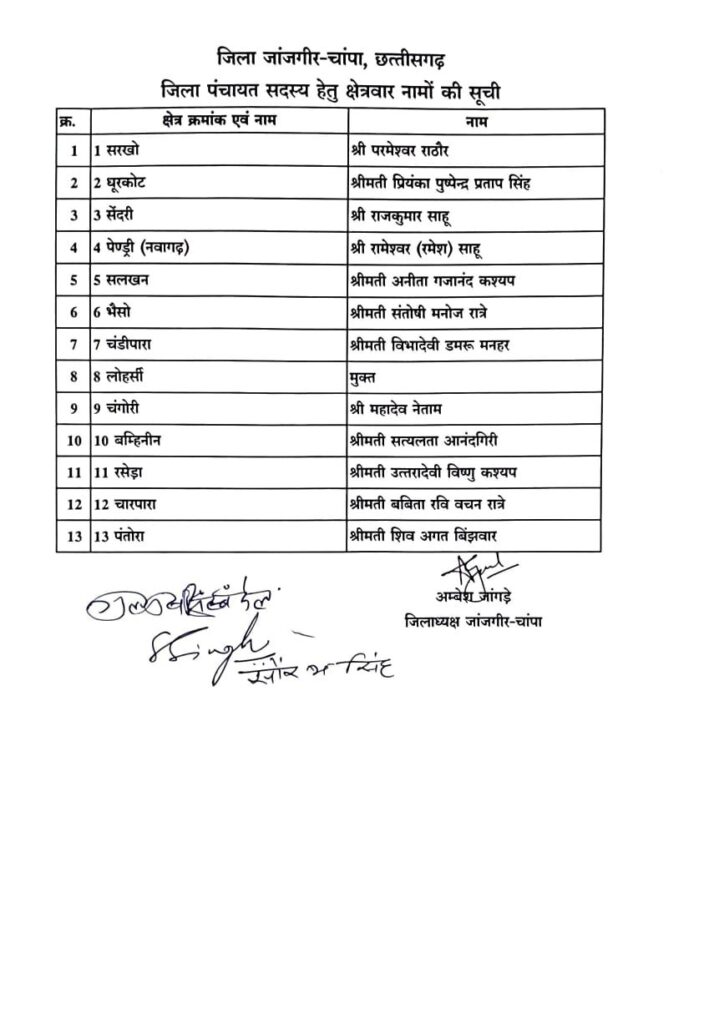 जिला जांजगीर-चांपा, छत्तीसगढ़
जिला पंचायत सदस्य हेतु क्षेत्रवार नामों की सूची
क्र. क्षेत्र क्रमांक एवं नाम नाम
1 1 सरखो श्री परमेश्वर राठौर
2 2 धूरकोट श्रीमती प्रियंका पुष्पेन्द्र प्रताप सिंह
3 3 सेंदरी श्री राजकुमार साहू
4 4 पेण्ड्री (नवागढ़) श्री रामेश्वर (रमेश) साहू
5 5 सलखन श्रीमती अनीता गजानंद कश्यप
6 6 भैसो श्रीमती संतोषी मनोज रात्रे
7 7 चंडीपारा श्रीमती विभादेवी डमरू मनहर
8 8 लोहर्सी मुक्त
9 9 चंगोरी श्री महादेव नेताम
10 10 बम्हिनीन श्रीमती सत्यलता आनंदगिरी
11 11 रसेड़ा श्रीमती उत्तरादेवी विष्णु कश्यप
12 12 चारपारा श्रीमती बबिता रवि वचन रात्रे
13 13 पंतोरा श्रीमती शिव अगत बिंझवार
अम्बेश जांगड़े
जिलाध्यक्ष जांजगीर-चांपा
SSingh
सिंह